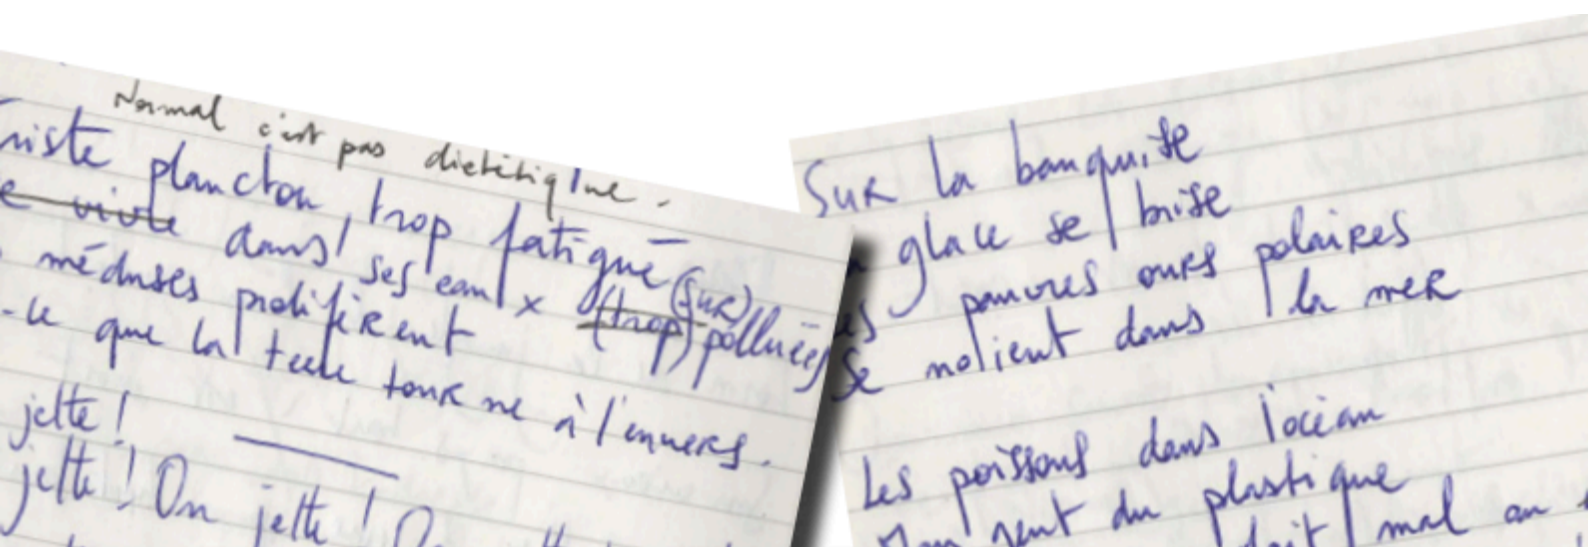 Normal c'est pas dietétique.
riste plancton, trop fatigué
e vivre dans ses eaux (trop) (sur) polluées
méduses prolifèrent
-ce que la terre tourne à l'envers.
jette !
jette ! On jette !
Sur la banquise
glace se brise
es pauvres ours polaires
Se noient dans la mer
Les poissons dans l'océan
du plastique
mal au